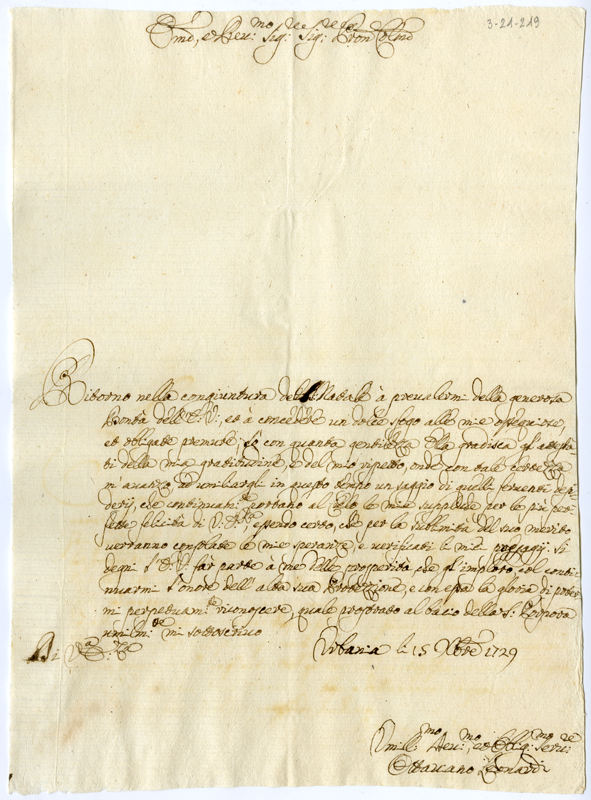 3-21-219
Em̃o, e Rev:mo Sig:re Sig:re Pron Colmo
Ritorno nella congiuntura del S. Natale à prevalermi della generosa
bontà dell' E. V:, et à concedere un dolce sfogo alle mie ossequiose,
et obligate premure: So con quanta gentilezza Ella gradisca gl' attesta-
ti della mia gratitudine, e del mio rispetto, onde con tale certezza
m' avanzo ad umiliargli in questo tenno un saggio di quelli ferventi desi-
derij, che continuam:te portano al Cielo le mie suppliche per le più per-
fette felicità di V: Em:za essendo certo, che per la sublimità del suo merito
verranno consolate le mie speranze, e verificati li miei presagij. Si
degni l' E. V. far parte à me delle prosperità, che gl' imploro col conti-
nuarmi l' onore dell' alta sua Protezzione, e con essa la gloria di poter-
mi perpetuam:te riconoscere, quale prostrato al bacio della S: Porpora
umilm:te mi sottoscrivo
Di V: Em:za
Urbania li 15 Xbre 1729
Umill:mo Dev:mo, et Oblig:mo Serv:re
Ottaviano Leonardi